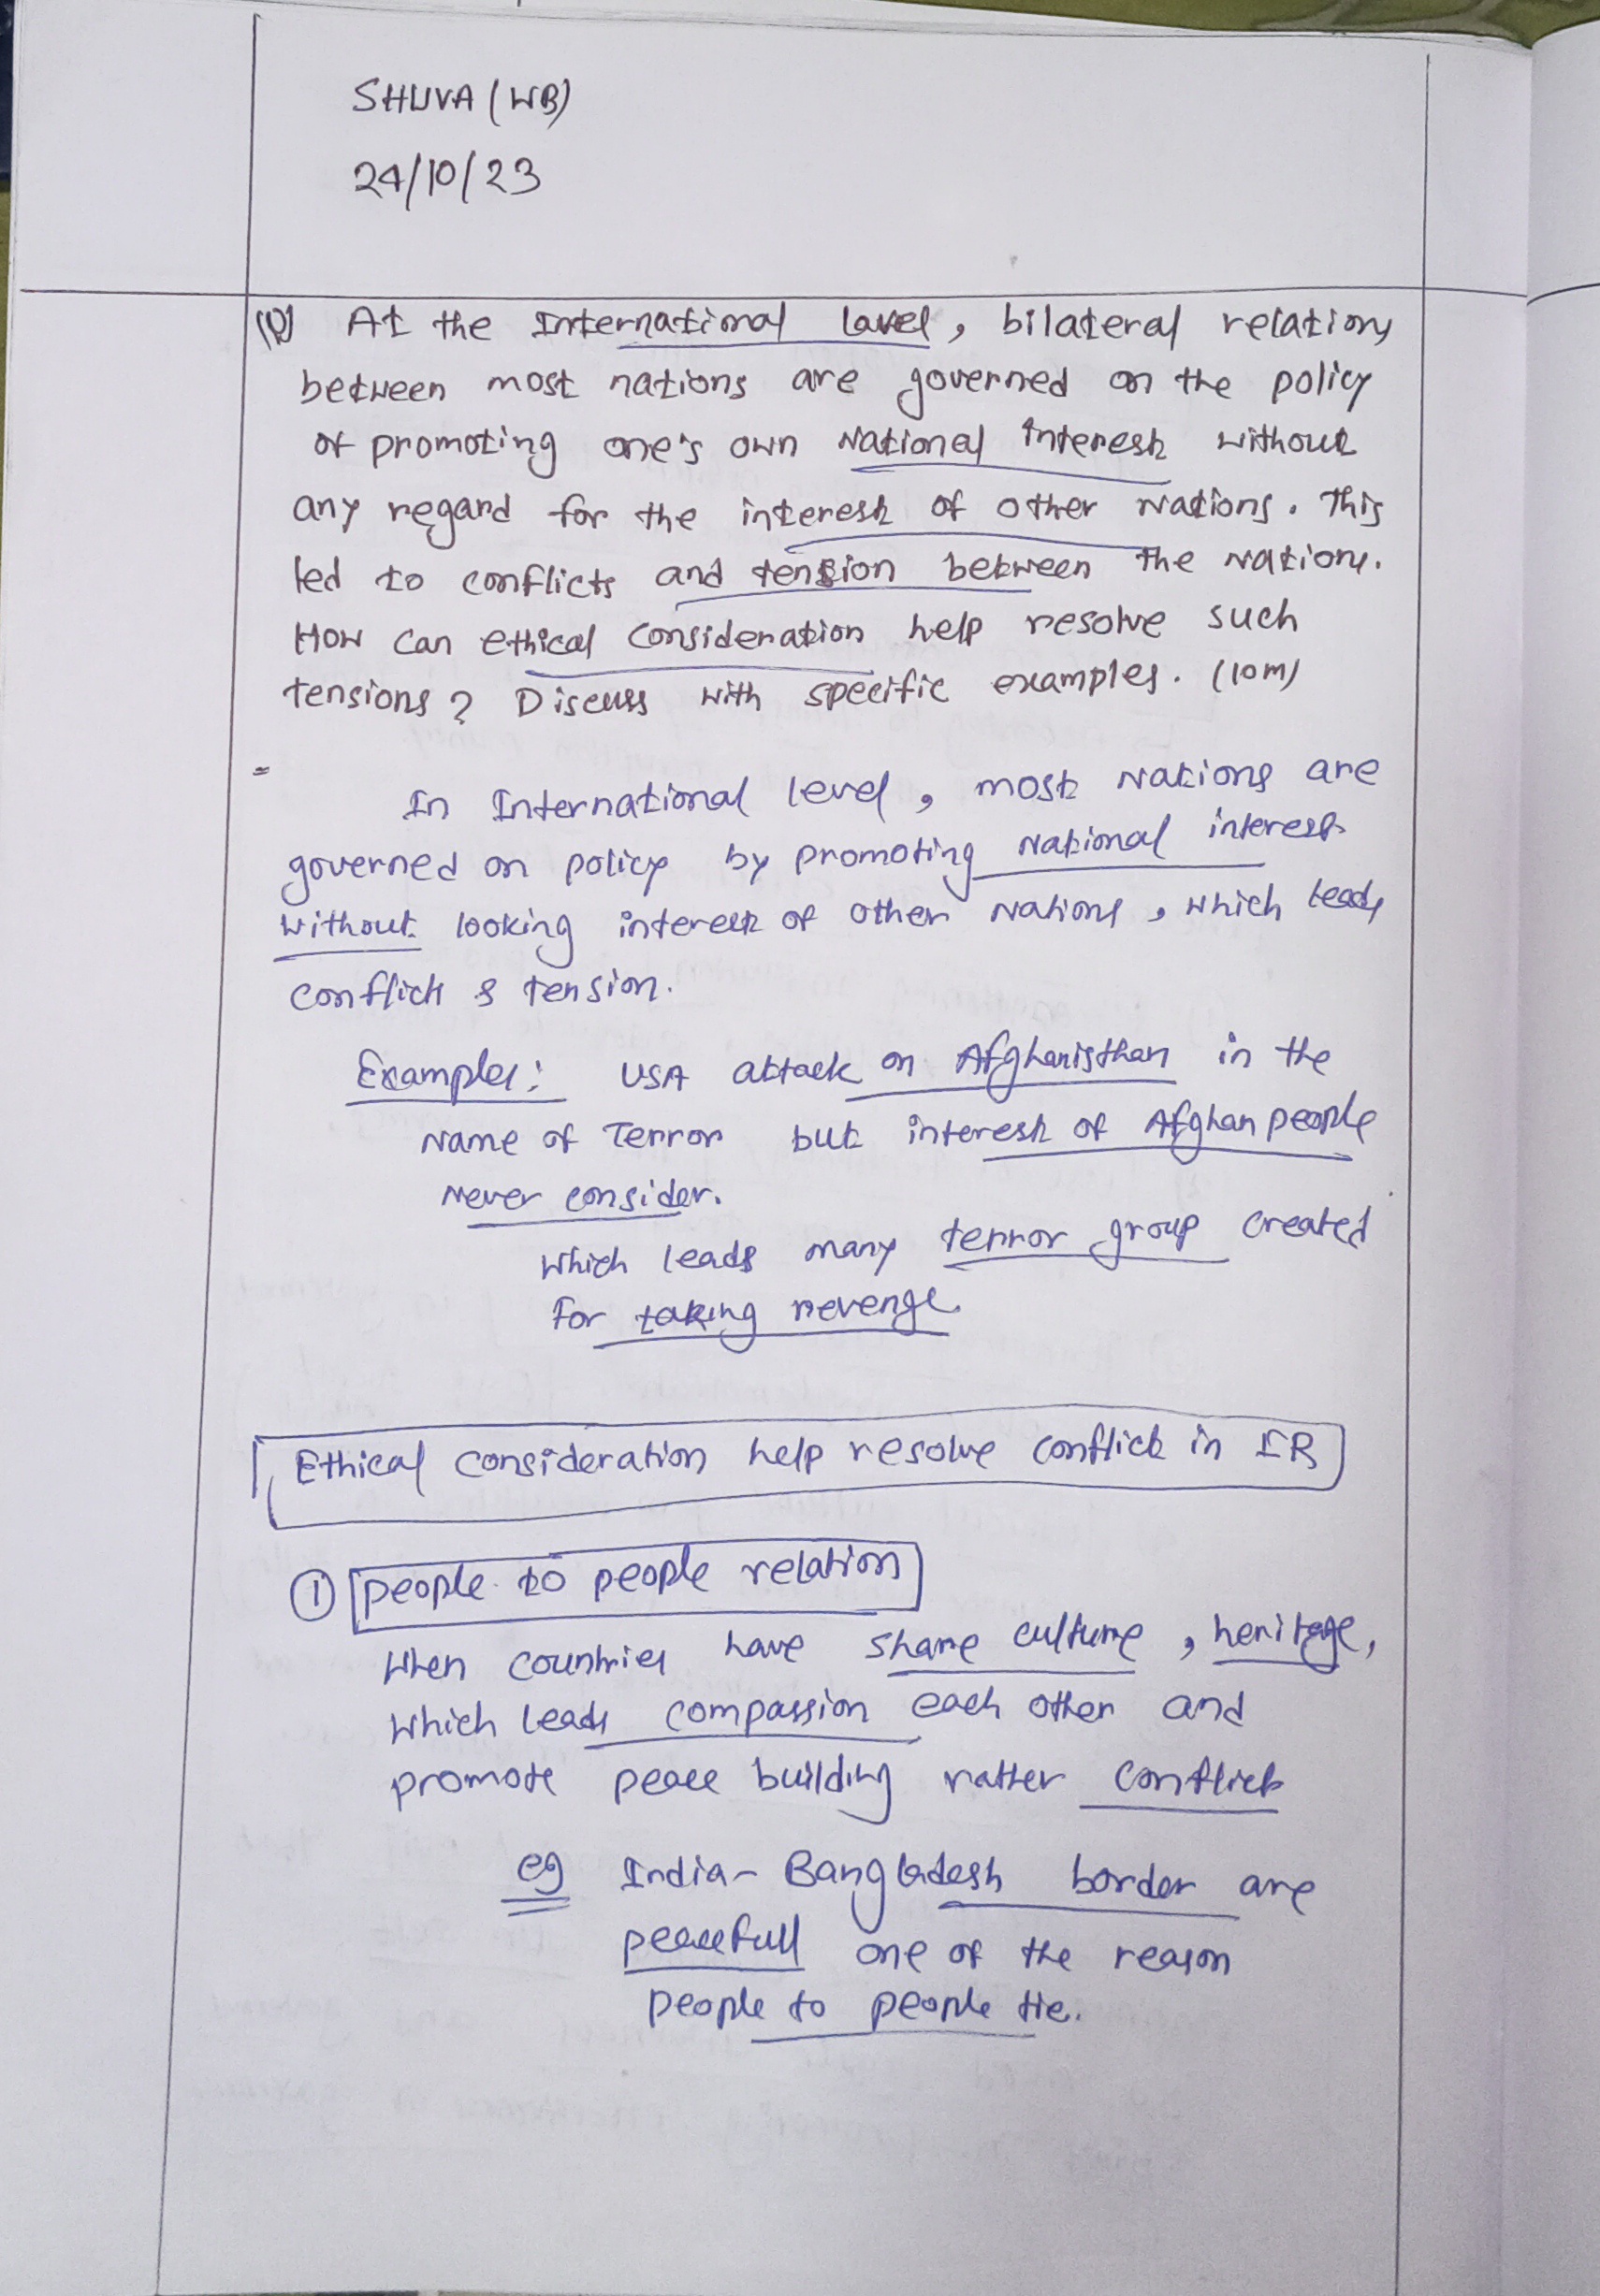 SHUVA (WB)
24/10/23
(Q) At the International Lavel, bilateral relations
between most nations are governed on the policy
of promoting one's own National interest without
any regard for the interest of other Nations. This
led to conflicts and tension between the Nations.
How can ethical consideration help resolve such
tensions? Discuss with specific examples. (10m)
=
In International level, most Nations are
governed on policy by promoting National interest
without looking interest of other Nations, which leads
conflict & tension.
Examples: USA attack on Afghanisthan in the
Name of Terror but interest of Afghan people
Never consider.
Which leads many terror group created
for taking revenge.
Ethical consideration help resolve conflict in IR
① people to people relation
When countries have share culture, heritage,
which leads compassion each other and
promote peace building rather conflict
eg India- Bangladesh border are
peacefull one of the reason
people to people tie.